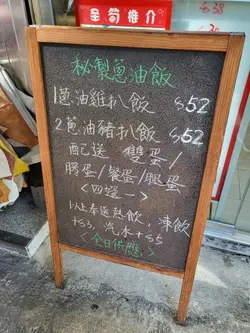 至筍推介
秘製蔥油飯
1蔥油雞扒飯 $52
2蔥油豬扒飯 $52
配送 雙蛋/
腸蛋/餐蛋/腿蛋
<四選一>
以上奉送熱飲，凍飲
+$3，汽水+$5
<全日供應>